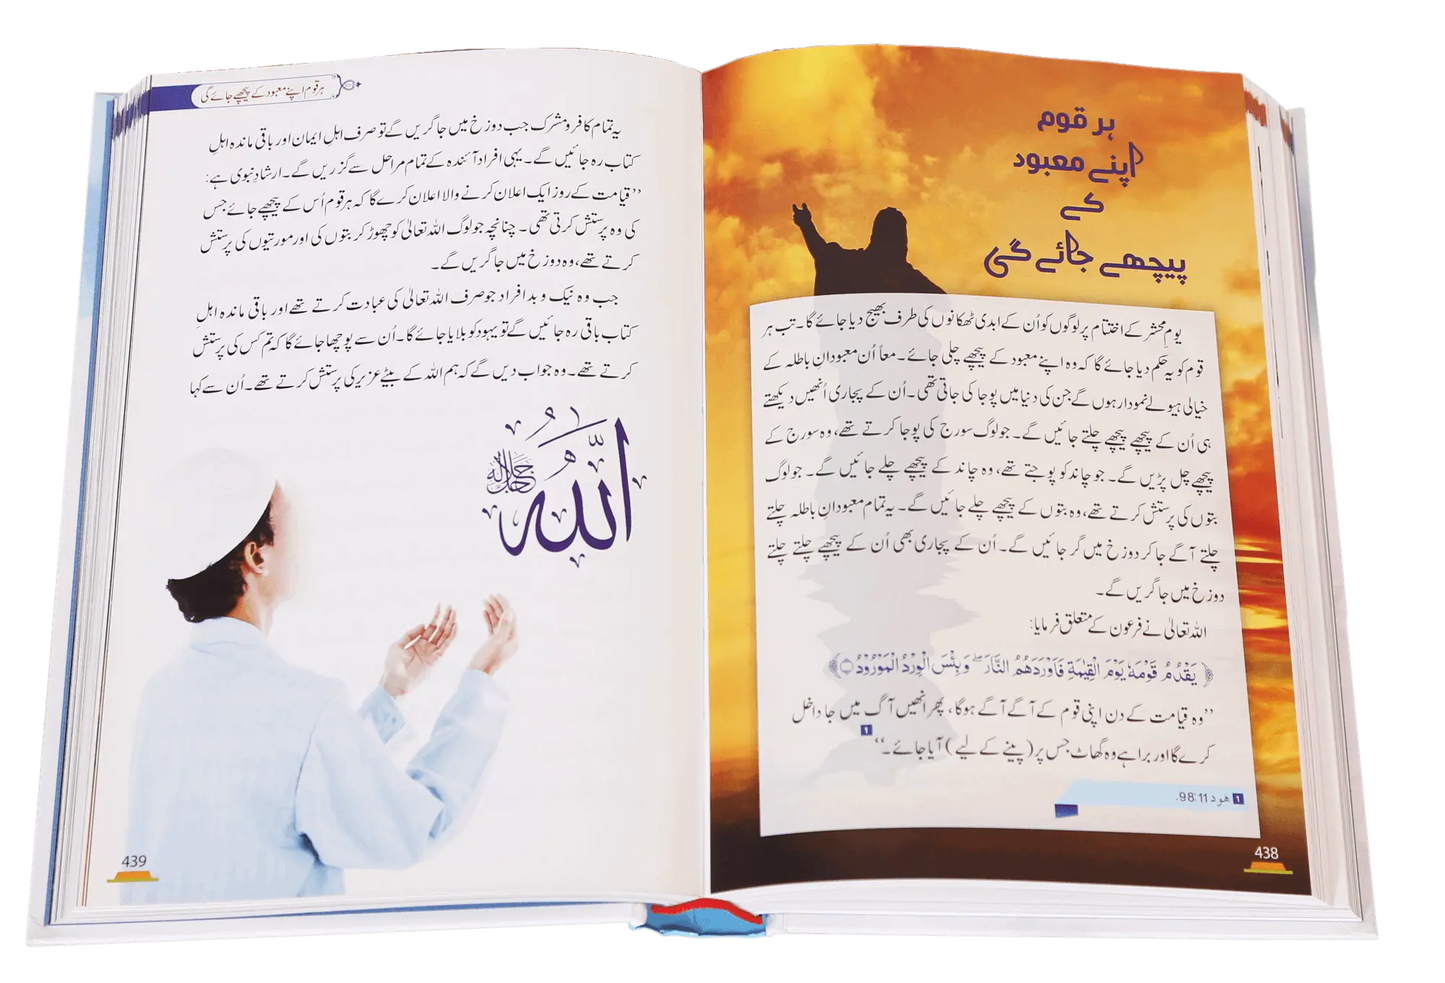 ہر قوم
اپنے معبود
کے
پیچھے جائے گی
یومِ محشر کے اختتام پر لوگوں کو اُن کے ابدی ٹھکانوں کی طرف بھیج دیا جائے گا۔ تب ہر
قوم کو یہ حکم دیا جائے گا کہ وہ اپنے معبود کے پیچھے چلی جائے۔ معاً اُن معبودانِ باطلہ کے
خیالی ہیولے نمودار ہوں گے جن کی دنیا میں پوجا کی جاتی تھی۔ اُن کے پجاری اُنھیں دیکھتے
ہی اُن کے پیچھے پیچھے چلتے جائیں گے۔ جو لوگ سورج کی پوجا کرتے تھے، وہ سورج کے
پیچھے چل پڑیں گے۔ جو چاند کو پوجتے تھے، وہ چاند کے پیچھے چلے جائیں گے۔ جو لوگ
بتوں کی پرستش کرتے تھے، وہ بتوں کے پیچھے چلے جائیں گے۔ یہ تمام معبودانِ باطلہ چلتے
چلتے آگے جا کر دوزخ میں گر جائیں گے۔ اُن کے پجاری بھی اُن کے پیچھے چلتے چلتے
دوزخ میں جا گریں گے۔
اللہ تعالیٰ نے فرعون کے متعلق فرمایا:
﴿ يَقْدُمُ قَوْمَهٗ يَوْمَ الْقِيٰمَةِ فَاَوْرَدَهُمُ النَّارَ ۖ وَبِئْسَ الْوِرْدُ الْمَوْرُوْدُ ۝﴾
’’وہ قیامت کے دن اپنی قوم کے آگے آگے ہوگا، پھر انھیں آگ میں جا داخل
کرے گا اور برا ہے وہ گھاٹ جس پر (پینے کے لیے) آیا جائے۔‘‘ 1
1 ھود 98:11.
438
ہر قوم اپنے معبود کے پیچھے جائے گی
یہ تمام کافر و مشرک جب دوزخ میں جا گریں گے تو صرف اہلِ ایمان اور باقی ماندہ اہلِ
کتاب رہ جائیں گے۔ یہی افراد آئندہ کے تمام مراحل سے گزریں گے۔ ارشادِ نبوی ہے:
’’قیامت کے روز ایک اعلان کرنے والا اعلان کرے گا کہ ہر قوم اُس کے پیچھے جائے جس
کی وہ پرستش کرتی تھی۔ چنانچہ جو لوگ اللہ تعالیٰ کو چھوڑ کر بتوں کی اور مورتیوں کی پرستش
کرتے تھے، وہ دوزخ میں جا گریں گے۔
جب وہ نیک و بد افراد جو صرف اللہ تعالیٰ کی عبادت کرتے تھے اور باقی ماندہ اہلِ
کتاب باقی رہ جائیں گے تو یہود کو بلایا جائے گا۔ اُن سے پوچھا جائے گا کہ تم کس کی پرستش
کرتے تھے۔ وہ جواب دیں گے کہ ہم اللہ کے بیٹے عزیر کی پرستش کرتے تھے۔ اُن سے کہا
اللّٰه جل جلاله
439